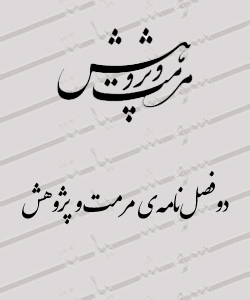 مرمت و پژوهش
دو فصل‌نامه‌ی مرمت و پژوهش